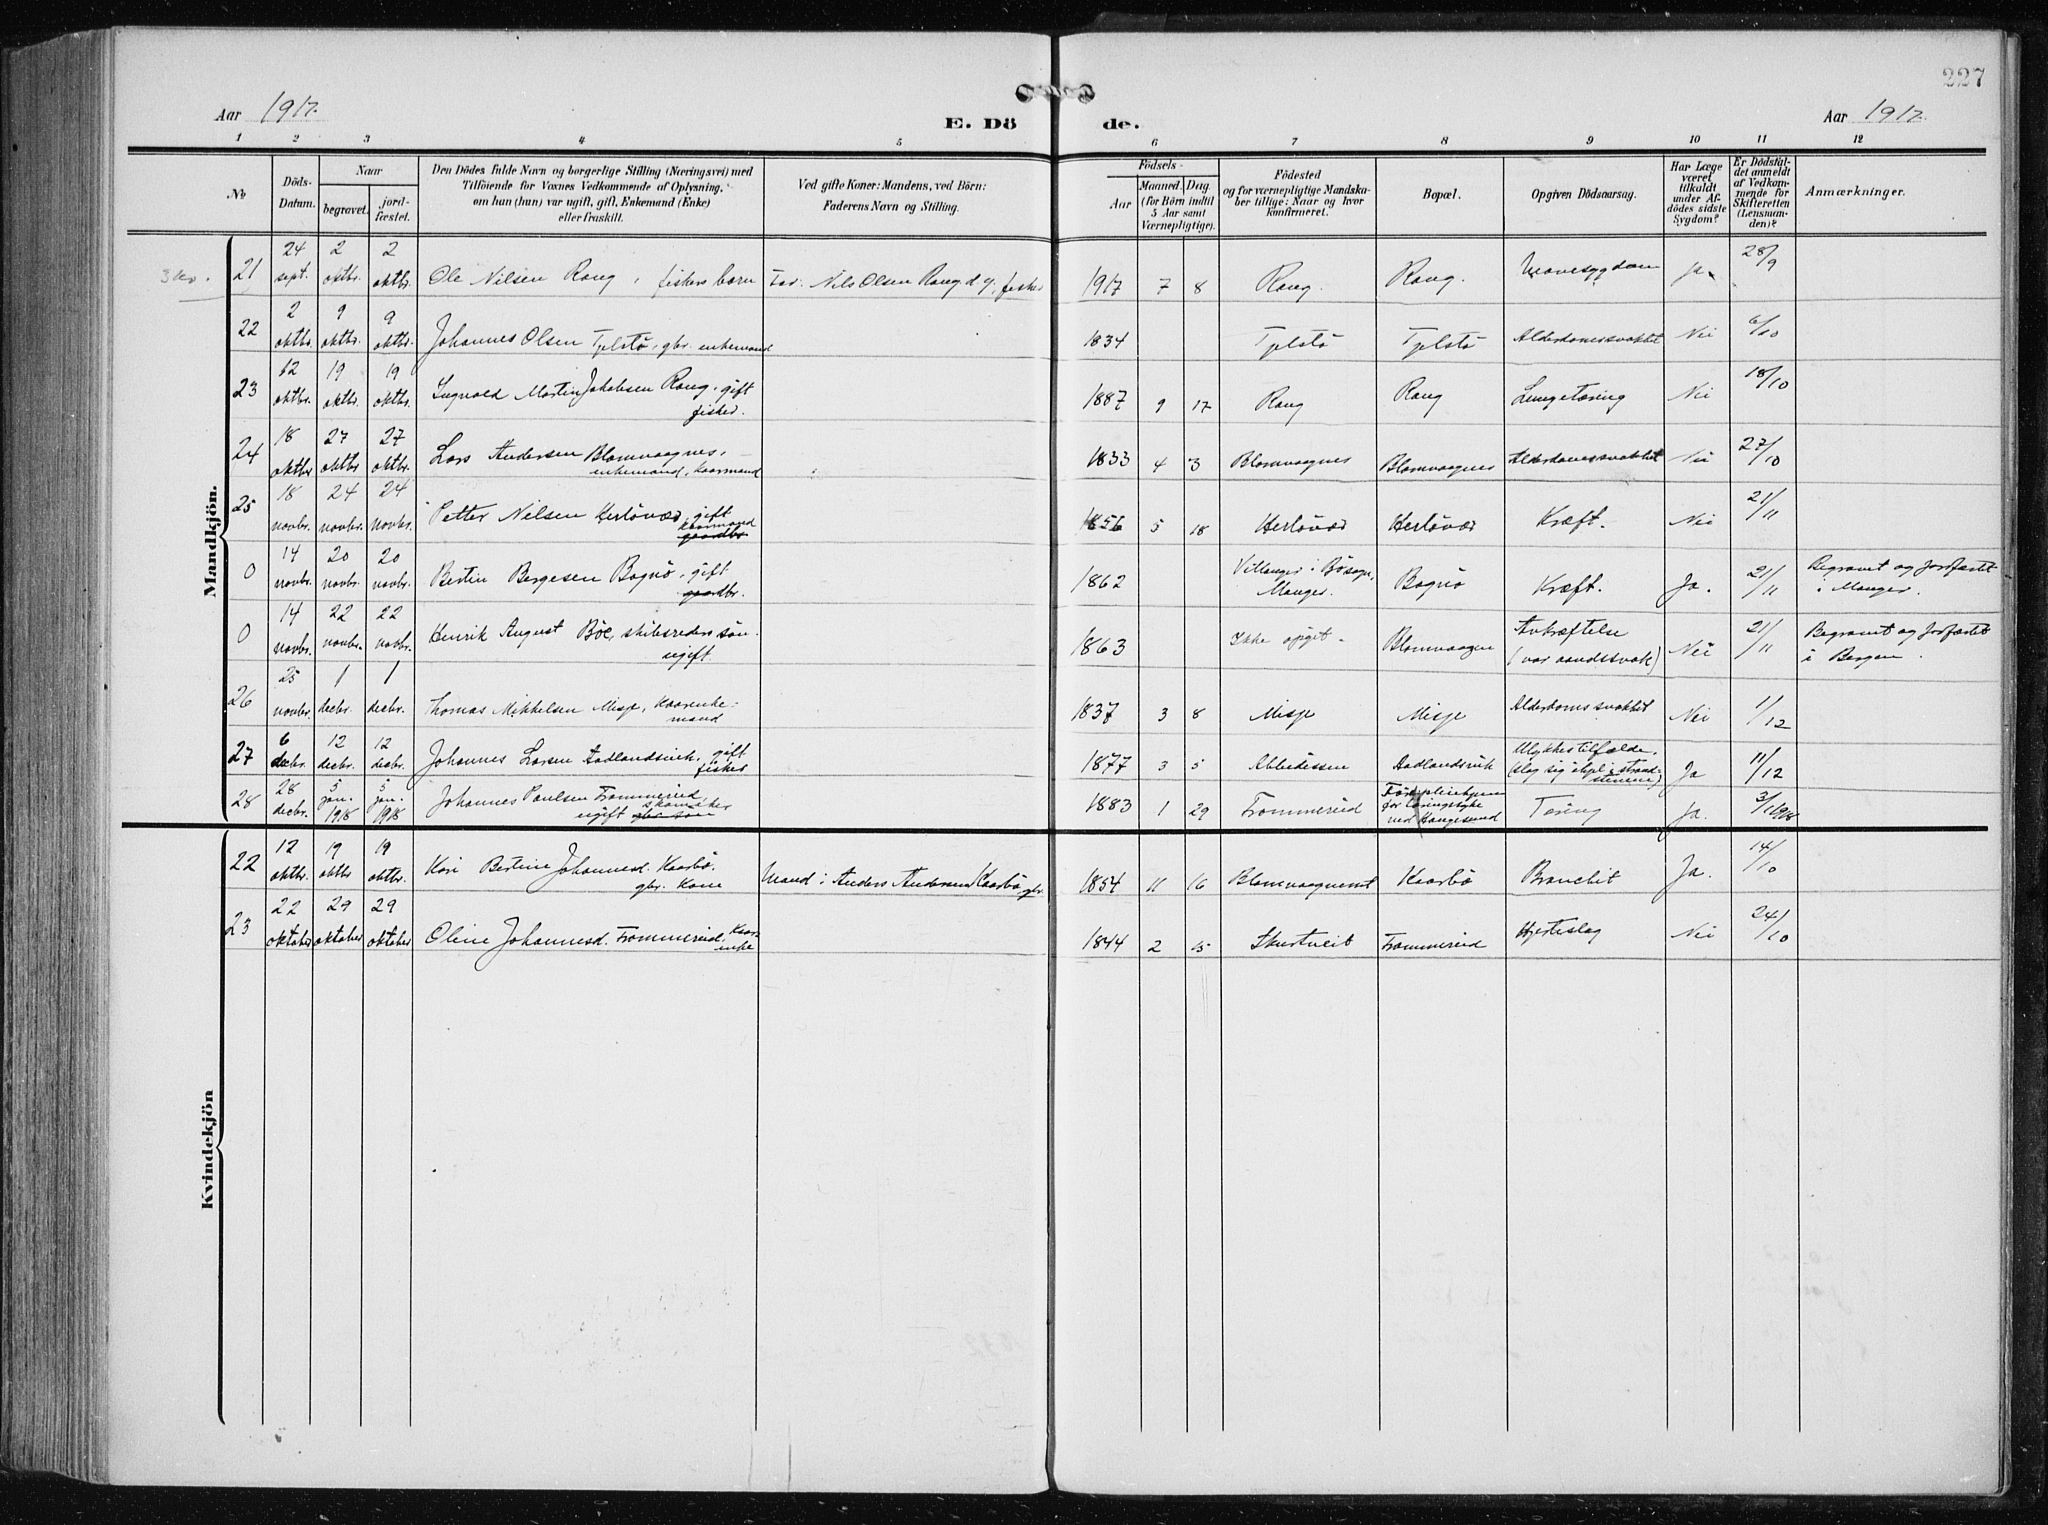 227
Aar 1917. E. Dö de. Aar 1917.
1 2 3 4 5 6 7 8 9 10 11 12
№
Döds-
Datum.
Naar
begravet.
jord-
fæstet.
Den Dödes fulde Navn og borgerlige Stilling (Næringsvei) med
Tilföiende for Voxnes Vedkommende af Oplysning,
om han (hun) var ugift, gift, Enkemand (Enke)
eller fraskilt.
Ved gifte Koner: Mandens, ved Börn:
Faderens Navn og Stilling.
Födsels-
Aar
Maaned. Dag
(for Börn indtil
5 Aar samt
Værnepligtige).
Födested
og for værnepligtige Mandska-
ber tillige: Naar og hvor
konfirmeret.
Bopæl.
Opgiven Dödsaarsag.
Har Læge
været
tilkaldt
under Af-
dödes sidste
Sygdom?
Er Dödsfal-
det anmeldt
af Vedkom-
mende for
Skifteretten
(Lensman-
den)?
Anmærkninger.
Mandkjön.
3 kv. 21 24 sept. 2 oktbr. 2 oktbr. Ole Nilsen Rong, fiskers barn Far: Nils Olsen Rong d.y. fisker 1917 7 8 Rong. Rong. Mavesygdom Ja 28/9
22 2 oktbr. 9 oktbr. 9 oktbr. Johannes Olsen Tjelstö, gbr. enkemand 1834 Tjelstö Tjelstö Alderdomssvakhet Nei 6/10
23 12 oktbr. 19 oktbr. 19 oktbr. Ingvald Martin Jakobsen Rong, gift
fisker. 1887 9 17 Rong Rong Lungetæring Nei 18/10
24 18 oktbr 27 oktbr 27 oktbr. Lars Andersen Blomvaagnes,
enkemand, kaarmand 1833 4 3 Blomvaagnes Blomvaagnes Alderdomssvakhet Nei 27/10
25 18 novbr. 24 novbr. 24 novbr. Petter Nilsen Herlövær, gift
kaarmand
gaardbr 1856 5 18 Herlövær Herlövær Kræft. Nei 21/11
0 14 novbr. 20 novbr. 20 novbr. Bertin Bergesen Bognö, gift
gaardbr. 1862 Villanger i Bösogn,
Manger. Bognö Kræft. Ja. 21/11 Begravet og jordfæstet
i Manger.
0 14 novbr. 22 novbr. 22 novbr. Henrik August Böe, skibsreders sön.
ugift. 1863 Ikke opgit Blomvaagen Avkræftelse
(var aandssvak) Nei 21/11 Begravet og jordfæstet
i Bergen.
26 25 novbr. 1 decbr. 1 decbr. Thomas Mikkelsen Misje, kaarenke-
mand 1837 3 8 Misje Misje Alderdomssvakhet Nei 1/12
27 6 decbr. 12 decbr. 12 decbr. Johannes Larsen Aadlandsvik, gift
fisker 1877 3 5 Adlandsvik Ulykkestilfælde.
(slog sig ihjel i strand-
stenene) Ja 11/12
28 28 decbr. 5 jan. 1918 5 jan. 1918 Johannes Paulsen Frommereid,
ugift skomaker
gbr. sön 1883 1 29 Frommereid Pleiehjem
for tæringssyke
ved Haugesund Tæring Ja. 3/1 1918
Kvindekjön
22 12 oktbr. 19 oktbr 19 oktbr. Kari Bertine Johannesd. Kaarbö.
gbr. kone Mand: Anders Andersen Kaarbö, gbr. 1854 11 16 Blomvaagnes Kaarbö Bronchit Ja. 14/10
23 22 oktober 29 oktober 29 oktober Oline Johannesd. Frommereid, kaar-
enke 1844 2 15 Skurtveit Frommereid Hjerteslag Nei 24/10